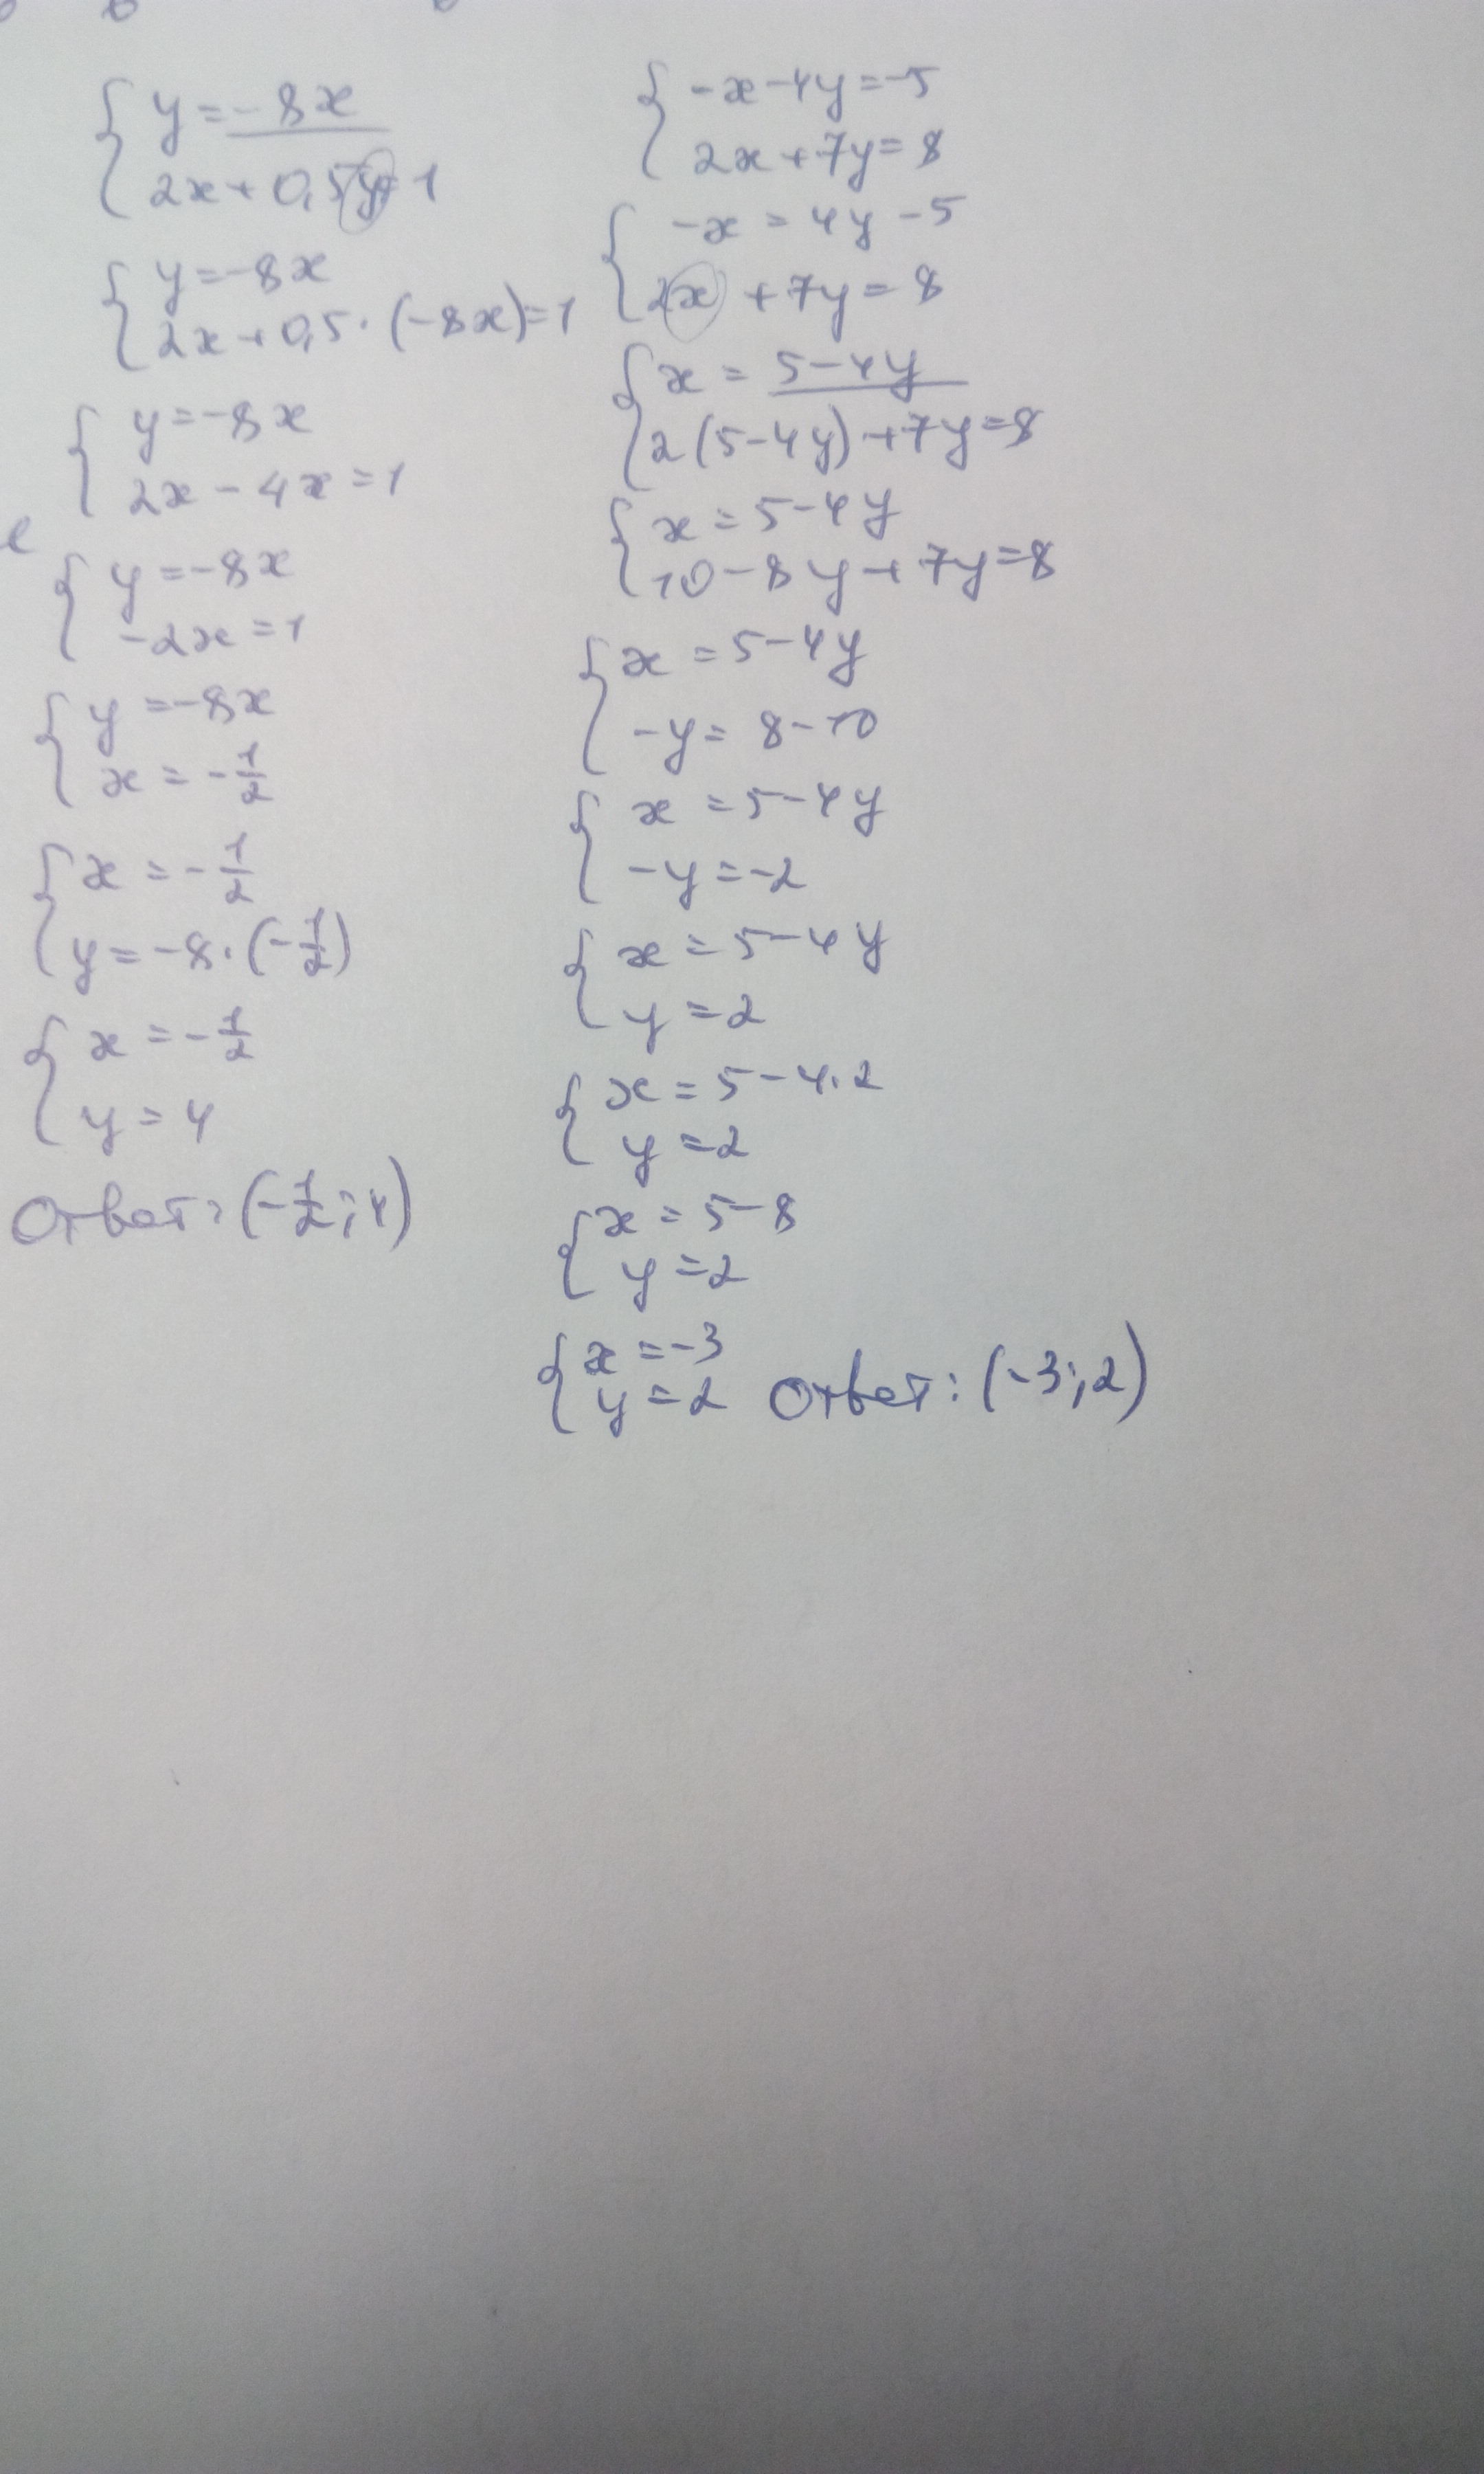 y = -8x
2x + 0,5y = 1
y = -8x
2x + 0,5 · (-8x) = 1
y = -8x
2x - 4x = 1
y = -8x
-2x = 1
y = -8x
x = -1/2
x = -1/2
y = -8 · (-1/2)
x = -1/2
y = 4
Ответ: (-1/2; 4)
-x - 4y = -5
2x + 7y = 8
-x = 4y - 5
2x + 7y = 8
x = 5 - 4y
2(5 - 4y) + 7y = 8
x = 5 - 4y
10 - 8y + 7y = 8
x = 5 - 4y
-y = 8 - 10
x = 5 - 4y
-y = -2
x = 5 - 4y
y = 2
x = 5 - 4·2
y = 2
x = 5 - 8
y = 2
x = -3
y = 2 Ответ: (-3; 2)